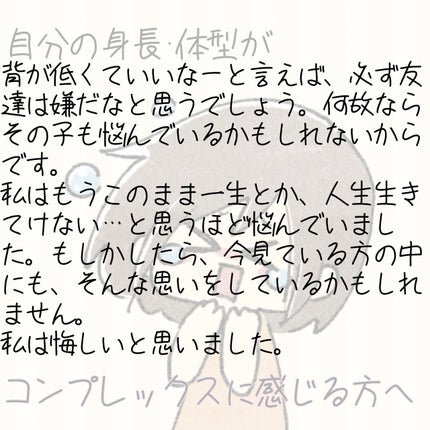 自分の身長·体型が
背が低くていいなーと言えば、必ず友
達は嫌だなと思うでしょう。何故なら
その子も悩んでいるかもしれないから
です。
私はもうこのまま一生とか、人生生き
てけない…と思うほど悩んでいまし
た。もしかしたら、今見ている方の中
にも、そんな思いをしているかもしれ
ません。
私は悔しいと思いました。
コンプレックスに感じる方へ